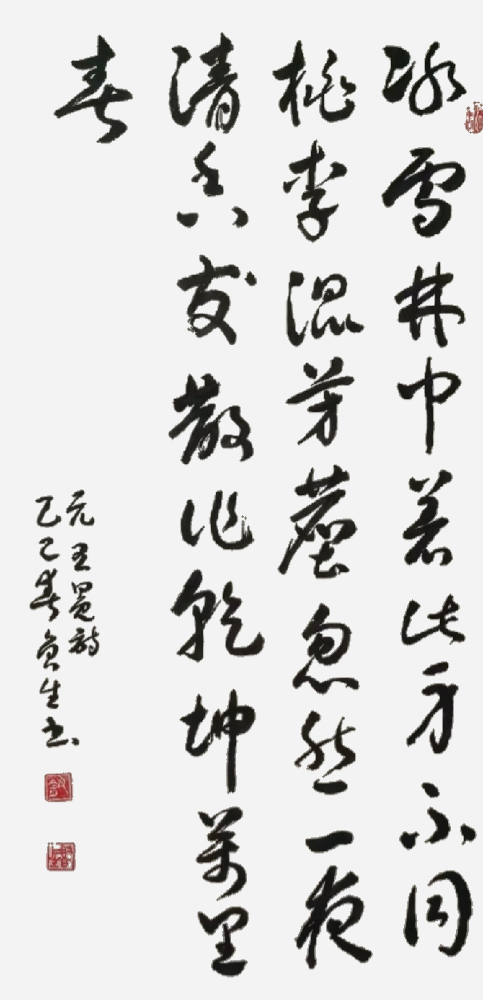 冰雪林中著此身不同
桃李混芳塵忽然一夜
清香发散作乾坤萬里
春
元王冕詩
乙巳春生书